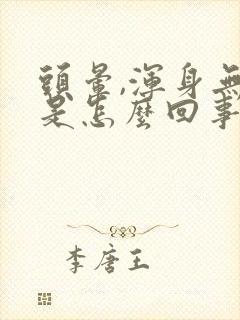 頭暈,渾身無
是怎麼回事
李唐王